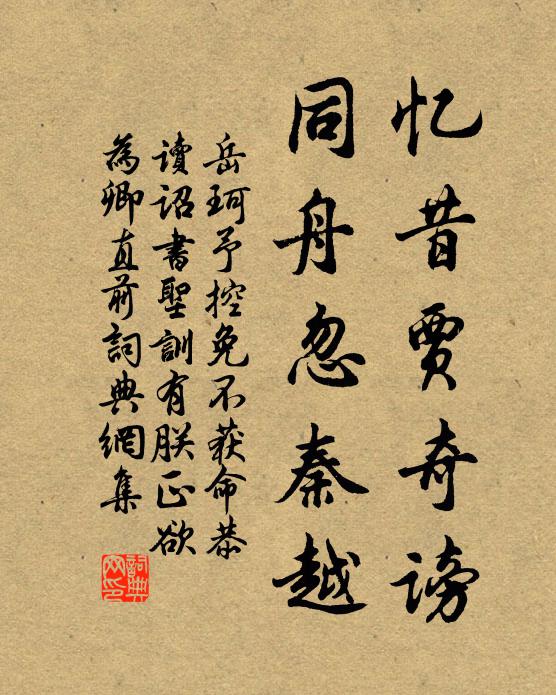 忆昔贾奇谤
同舟忽秦越
岳珂予控免不获命恭
读诏书聖訓有朕正欲
為卿直前詞典網集
詞典网印